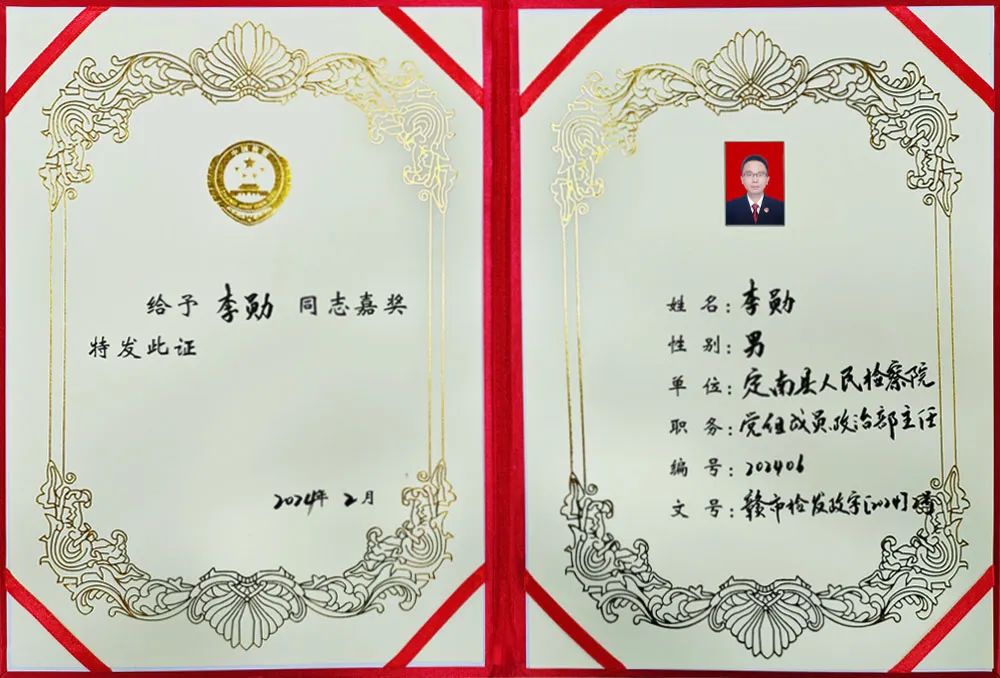 给予 李勋 同志嘉奖
特发此证
2024年 2月
姓 名:李勋
性 别:男
单 位:定南县人民检察院
职 务:党组成员、政治部主任
编 号:202406
文 号:赣市检发政字[2024]